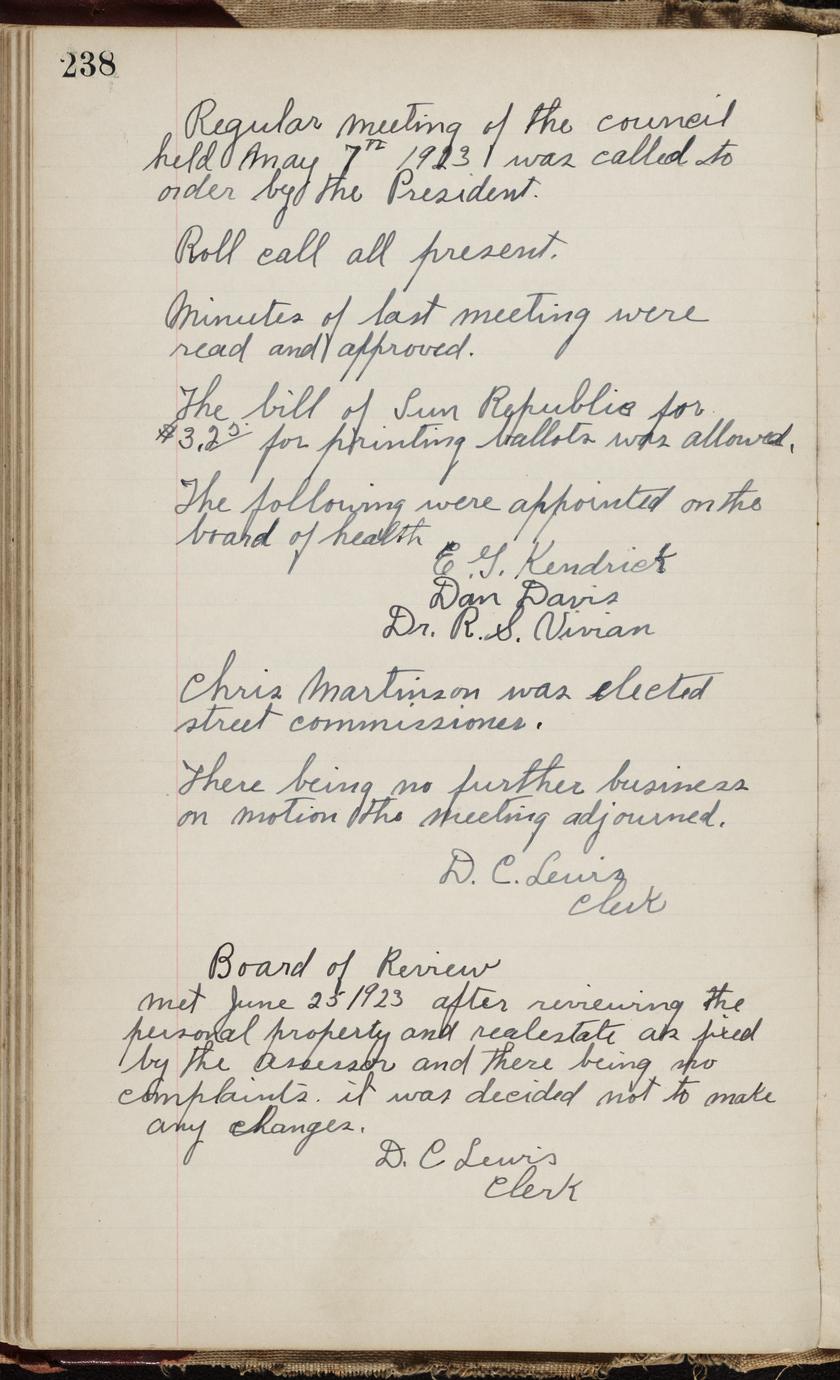 238
Regular meeting of the council
held May 7th 1923 was called to
order by the President.
Roll call all present.
Minutes of last meeting were
read and approved.
The bill of Sun Republic for
$3.25 for printing ballots was allowed.
The following were appointed on the
board of health
E. G. Kendrick
Dan Davis
Dr. R. S. Vivian
Chris Martinson was elected
street commissioner.
There being no further business
on motion the meeting adjourned.
D. C. Lewis
Clerk
Board of Review
met June 25 1923 after reviewing the
personal property and realestate as fixed
by the assessor and there being no
complaints. it was decided not to make
any changes.
D. C Lewis
Clerk